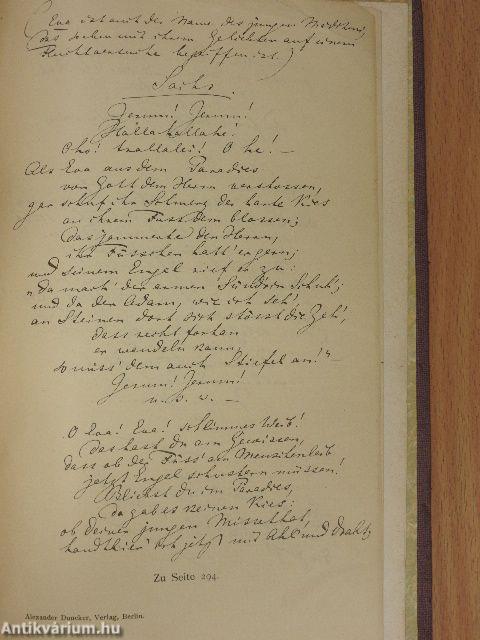 (Eva ist auch der Name des jungen Mädchens,
das soeben mit ihrem Geliebten auf einem
Fluchtversuche begriffen ist.)
Sachs.
Jerum! Jerum!
Hallahallahe!
Oho! trallalei! O he! —
Als Eva aus dem Paradies
von Gott dem Herrn verstossen,
gar schuf ihr Schmerz der harte Kies
an ihrem Fuss dem blossen;
das jammerte den Herrn,
ihr Füsschen hatt' er gern;
und seinem Engel rief er zu:
"da mach' der armen Sünd'rin Schuh';
und da der Adam, wie ich seh',
an Steinen dort sich stösst die Zeh',
dass recht fortan
er wandeln kann,
so miss' dem auch Stiefel an!" —
Jerum! Jerum!
u. s. w. —
O Eva! Eva! schlimmes Weib!
das hast du am Gewissen,
dass ob der Füss' am Menschenleib
jetzt Engel schustern müssen!
Bliebst du im Paradies,
da gab es keinen Kies:
ob deiner jungen Missethat,
handthier' ich jetzt mit Ahl' und Draht,
Zu Seite 294.
Alexander Duncker, Verlag, Berlin.
Antikvárium.hu